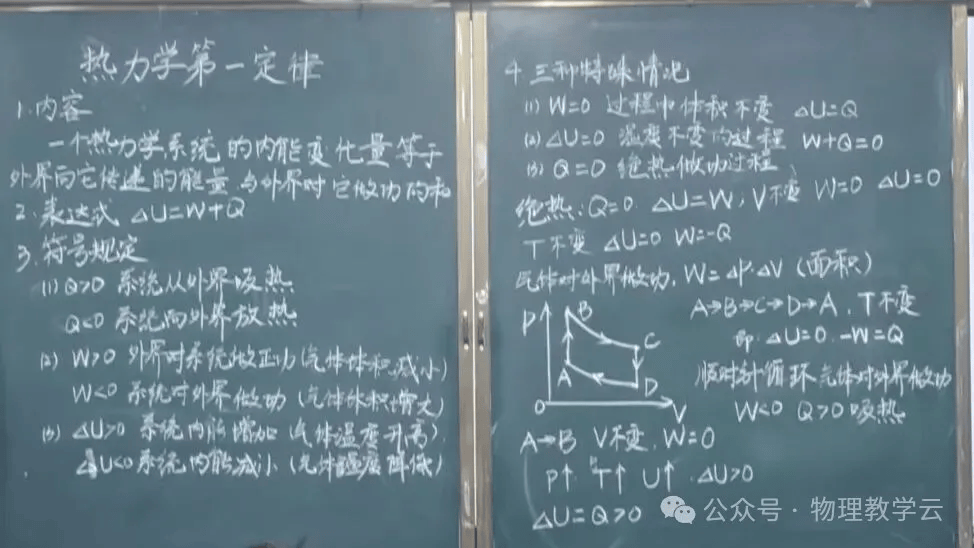 热力学第一定律
1.内容
一个热力学系统的内能变化量等于
外界向它传递的能量与外界对它做功的和
2.表达式 △U=W+Q
3.符号规定
(1) Q>0 系统从外界吸热
Q<0 系统向外界放热
(2) W>0 外界对系统做正功(气体体积减小)
W<0 系统对外界做功(气体体积增大)
(3) △U>0 系统内能增加(气体温度升高)
△U<0 系统内能减小(气体温度降低)
4.三种特殊情况
(1) W=0 过程中体积不变 △U=Q
(2) △U=0 温度不变的过程 W+Q=0
(3) Q=0 绝热做功过程
绝热:Q=0. △U=W; V不变 W=0 △U=Q
T不变 △U=0 W=-Q
气体对外界做功, W=△P·△V (面积)
P B C A D O V
A→B→C→D→A, T不变
即:△U=0. -W=Q
顺时针循环气体对外界做功
W<0 Q>0 吸热
A→B V不变, W=0
P↑ T↑ U↑ △U>0
△U=Q>0
公众号·物理教学云